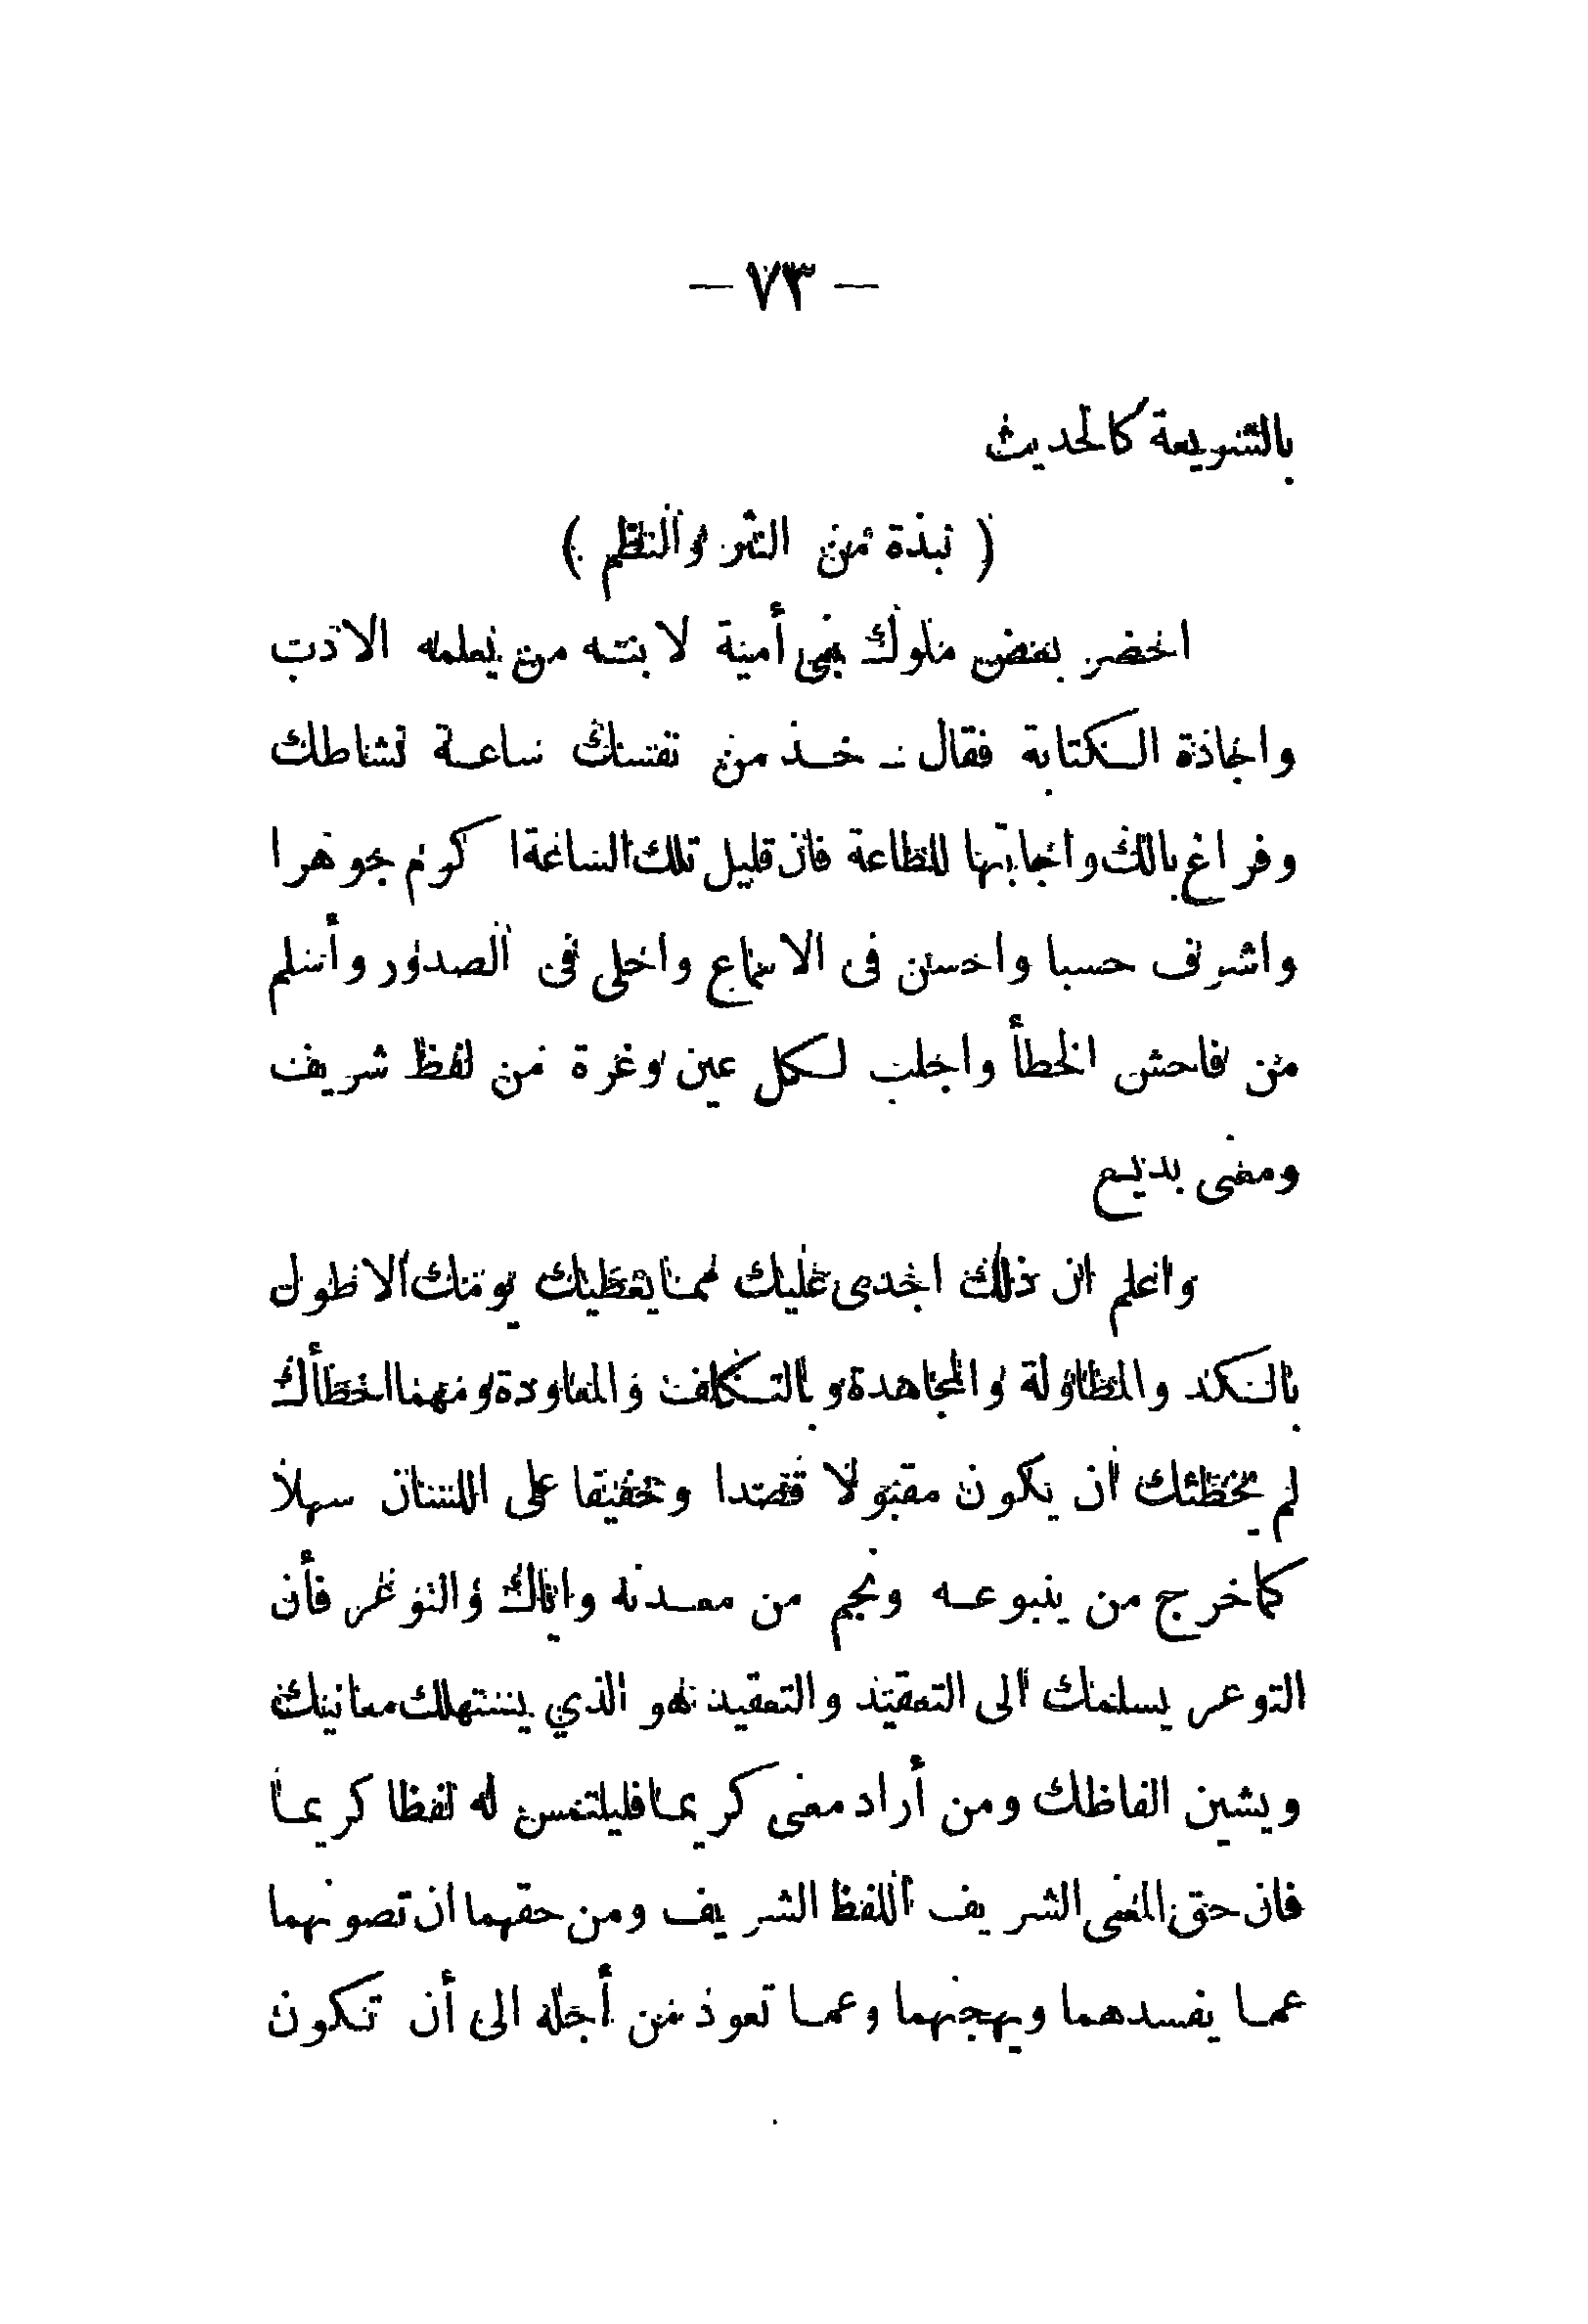 — ٧٣ —
بالشريعة كالحديث
( نبذة من النثر والنظم )
احضر بعض ملوك بني أمية لابنه من يعلمه الادب
واجادة الكتابة فقال - خذ من نفسك ساعة نشاطك
وفراغ بالك واجابتها للطاعة فان قليل تلك الساعة اكرم جوهرا
واشرف حسبا واحسن فى الاسماع واحلى فى الصدور وأسلم
من فاحش الخطأ واجلب لكل عين وغرة من لفظ شريف
ومعنى بديع
واعلم ان ذلك اجدى عليك مما يعطيك يومك الاطول
بالكد والمطاولة والمجاهدة وبالتكلف والمعاودة ومهما اخطأك
لم يخطئك ان يكون مقبولا قصدا وخفيفا على اللسان سهلا
كما خرج من ينبوعه ونجم من معدنه واياك والتوعر فأن
التوعر يسلمك الى التعقيد والتعقيد هو الذي يستهلك معانيك
ويشين الفاظك ومن أراد معنى كريما فليلتمس له لفظا كريما
فان حق المعنى الشريف اللفظ الشريف ومن حقهما ان تصونهما
عما يفسدهما ويهجنهما وعما تعوذ من أجله الى أن تكون